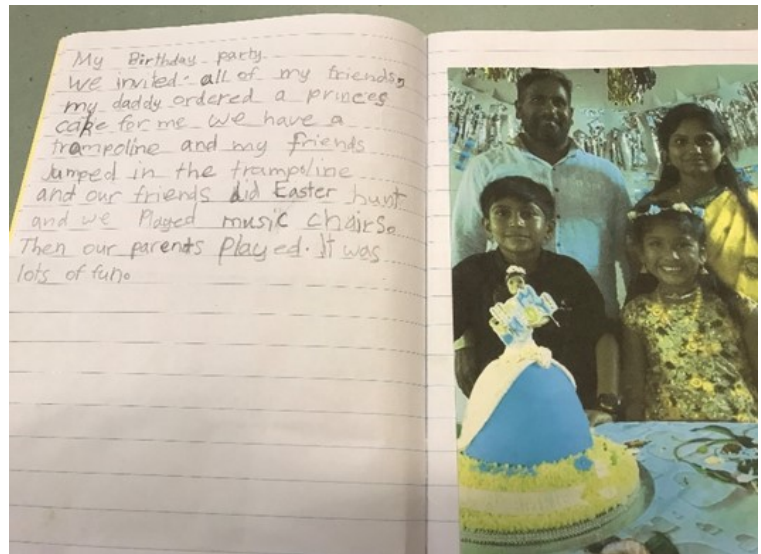 My Birthday party
We invited. all of my friends,
my daddy ordered a princes
cake for me We have a
trampoline and my friends
Jumped in the trampoline
and our friends did Easter hunt
and we Played music chairs.
Then our parents played. It was
lots of fun.